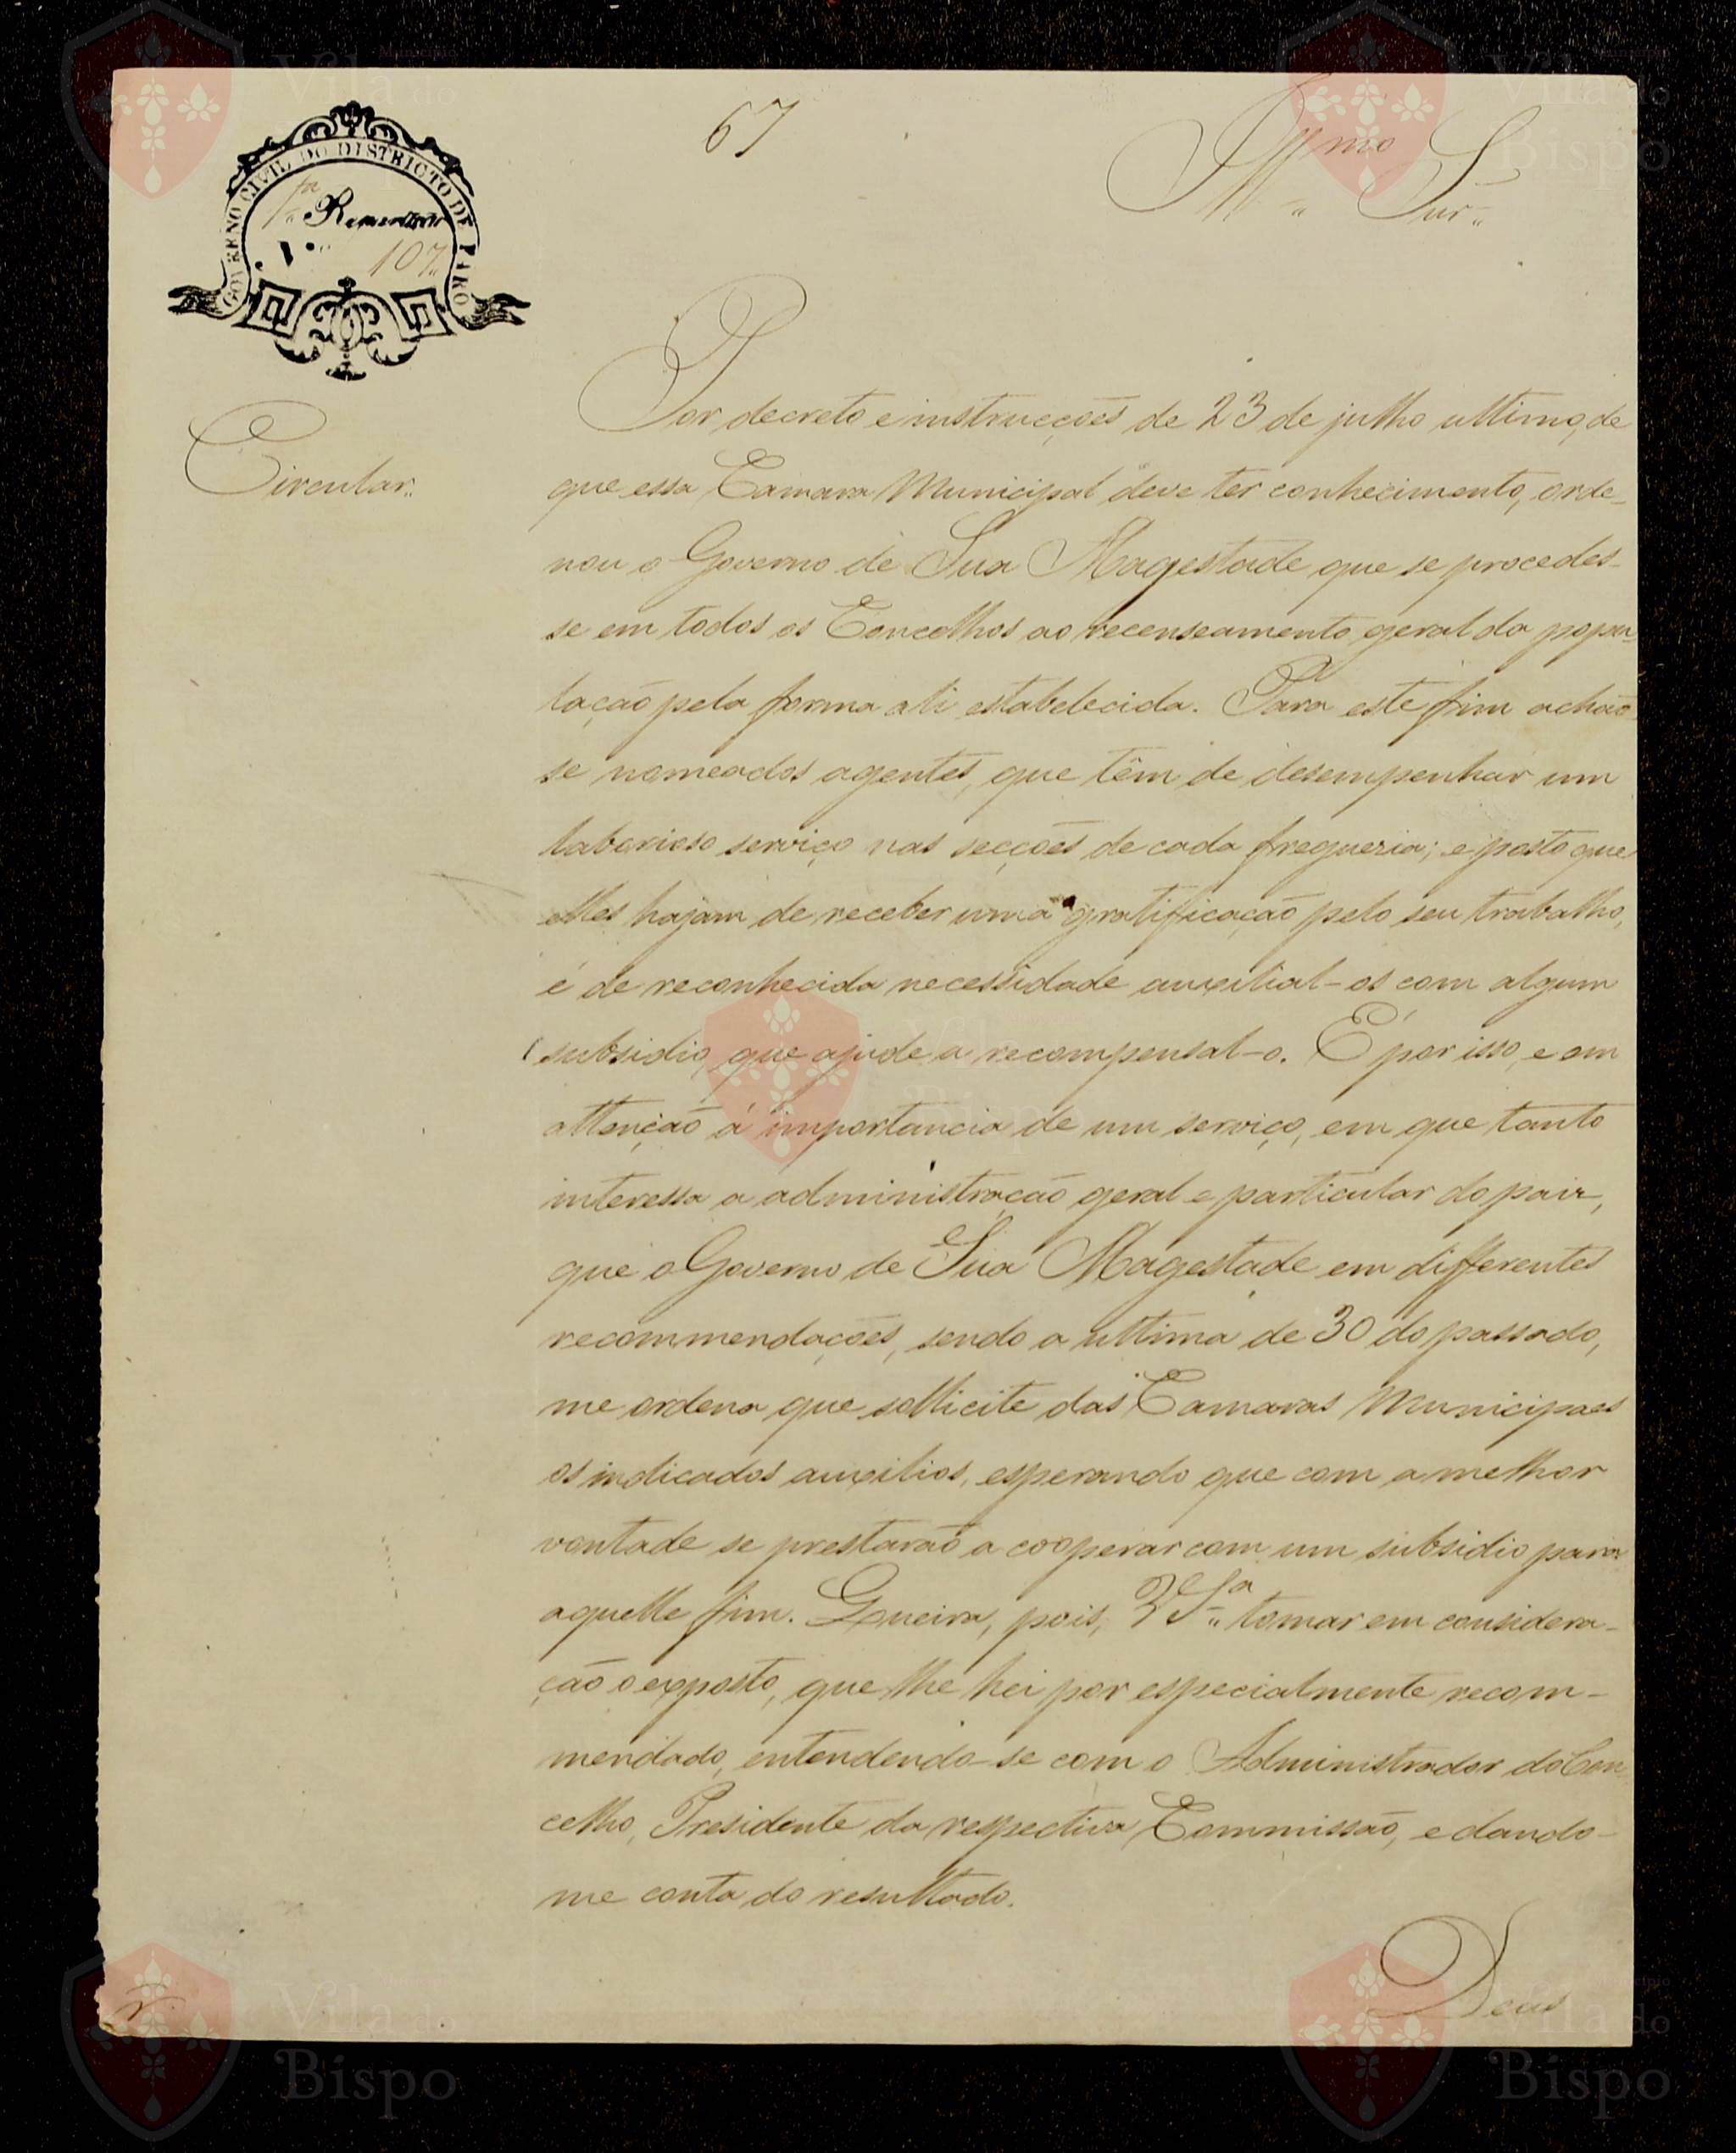 67
Illmo Snr.
GOVERNO CIVIL DO DISTRICTO DE FARO
1ª Repartição
N.º 107
Circular.
Por decreto e instrucções de 23 de julho ultimo, de
que essa Camara Municipal deve ter conhecimento, orde-
nou o Governo de Sua Magestade que se procedes-
se em todos os Concelhos ao recenseamento geral da popu-
lação pela forma ali estabelecida. Para este fim achão-
se nomeados agentes, que têm de desempenhar um
laborioso serviço nas secções de cada freguezia; e posto que
elles hajam de receber uma gratificação pelo seu trabalho,
é de reconhecida necessidade auxilial-os com algum
subsidio, que ajude a recompensal-o. É por isso, e em
attenção á importancia de um serviço, em que tanto
interessa a administração geral e particular do paiz,
que o Governo de Sua Magestade em differentes
recommendações, sendo a ultima de 30 do passado,
me ordena que sollicite das Camaras Municipaes
os indicados auxilios, esperando que com a melhor
vontade se prestarão a cooperar com um subsidio para
aquelle fim. Queira, pois, V. Sª tomar em considera-
ção o exposto, que lhe hei por especialmente recom-
mendado, entendendo-se com o Administrador do Con-
celho, Presidente da respectiva Commissão, e dando-
me conta do resultado.
Deus
Vila do
Bispo